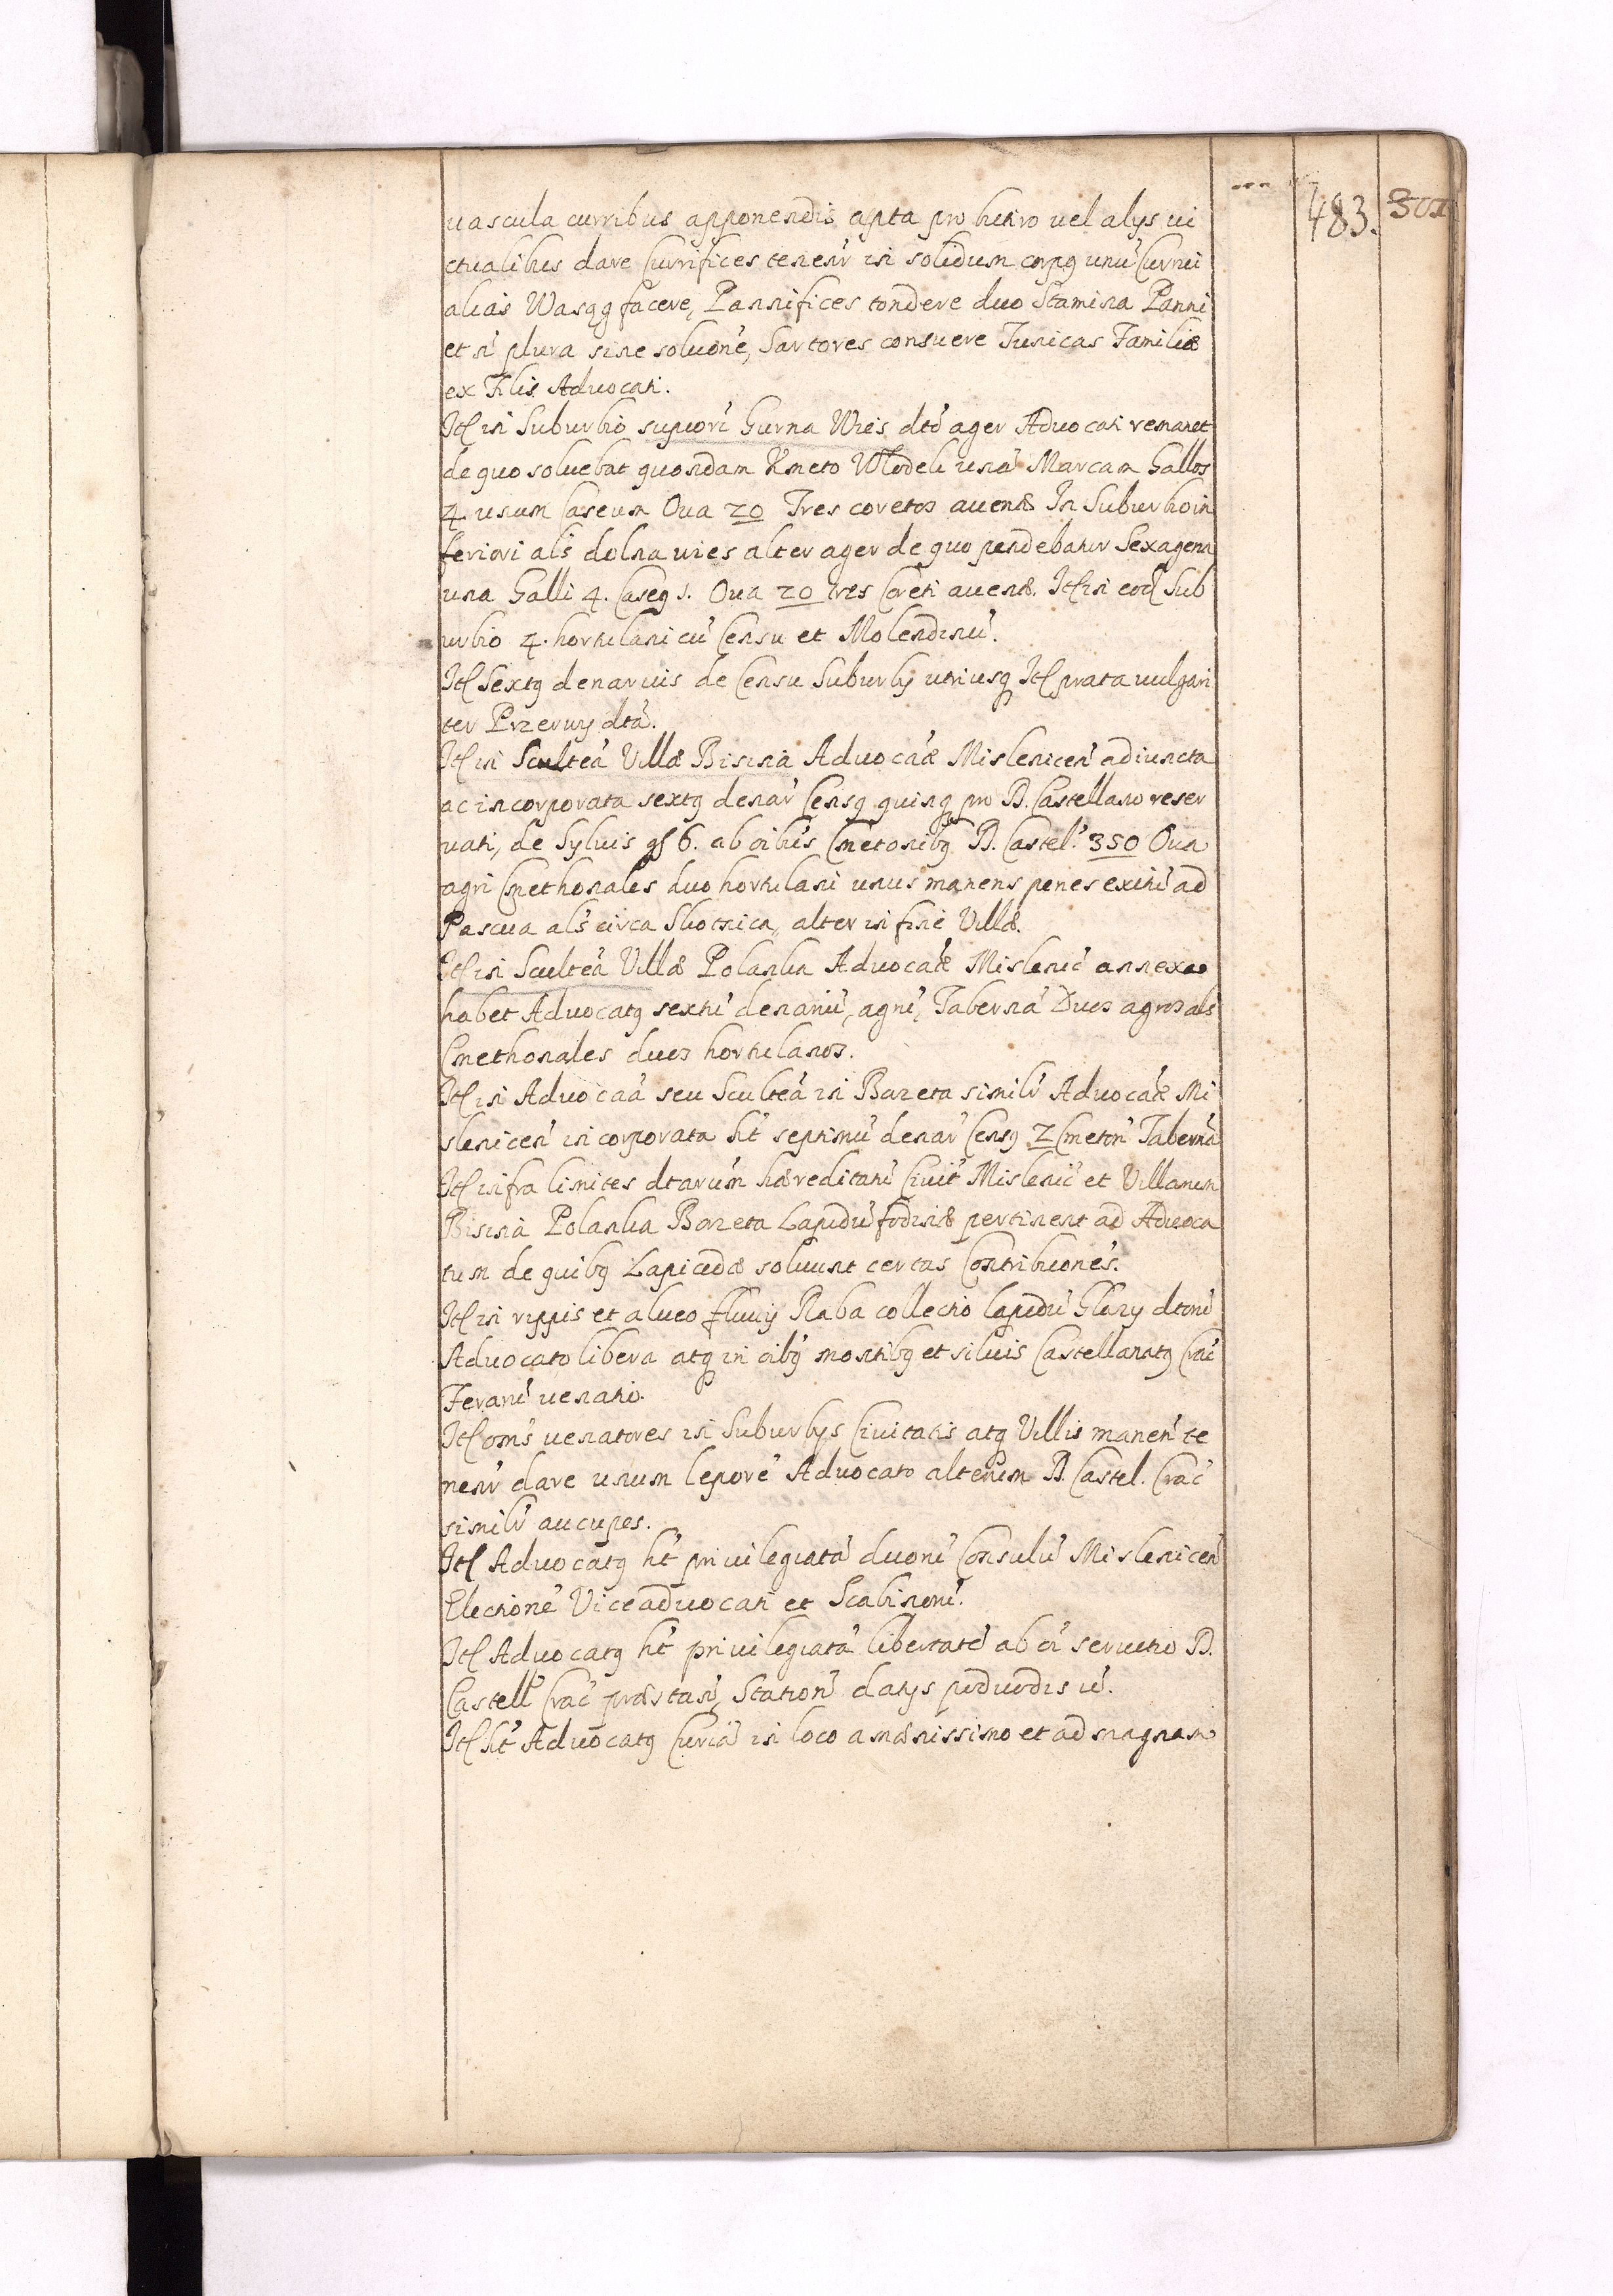 483. 301
uascula curribus apponendis apta pro butiro vel alys ui
ctualibus dare Currifices tenenr̃ in solidum corpg unũ Currũ
alias Wasąg facere, Pannifices tondere duo Stamina Panni
et si plura sine soluõne, Sartores consuere Tunicas Familiæ
ex Filis Advocati.
Itẽ in Suburbio supiori Gurna Wies dtõ ager Advocati remanet
de quo soluebat quondam Kmeto Wlodek unã Marcam Gallos
4. unum Caseum Oua 20 Tres coretos auenæ In Suburbio in
feriori als dolna wies alter ager de quo pendebatur Sexagena
una Galli 4. Caseg 1. Oua 20 tres Coreti auenæ. Itẽ in eod Sub
urbio 4. hortulani cũ Censu et Molendinũ.
Itẽ Sextg denarius de Censu Suburby utriusq Itẽ prata uulgari
ter Przerwy dtã.
Itẽ in Scultẽa Villæ Bisina Advocãæ Mislenicen̄ adiuncta
ac incorporata sextg denar̃ Censg quinq pro D. Castellano reser
vati, de Syluis gs 6. ab oibus Cmetonibg D. Castel. 350 Oua
agri Cmethonales duo hortulani unus manens penes exitũ ad
Pascua als circa Skotnica, alter in fine Villæ.
Itẽ in Scultẽa Villæ Polanka Advocãæ Mislenic̃ annexa
habet Advocatg sextũ denariũ, agrũ, Tabernã Duos agros als
Cmethonales duos hortulanos.
Itẽ in Advocãa seu Scultẽa in Barzeta similr̃ Advocãæ Mi
slenicen̄ incorporata ht̃ septimũ denar̃ Censg 2 Cmeton̄ Tabernã
Itẽ infra limites dtarũm hæreditatũ Ciuit̃ Mislenic̃ et Villarum
Bisina Polanka Barzeta Lapidũ fodinæ pertinent ad Advoca
tum de quibg Lapicidæ soluunt certas Contribuões.
Itẽ in rippis et alueo fluuy Raba collectio lapidũ Glazy dtorũ
Advocato libera atq in oibg montibg et siluis Castellanatg Crac̃
Ferarũ uenatio.
Itẽ oms̃ uenatores in Suburbys Ciuitatis atq Villis manen̄ te
nenr̃ dare unum leporẽ Advocato alterum D. Castel. Crac̃
similr̃ aucupes.
Itẽ Advocatg ht̃ priuilegiatã duorũ Consulũ Mislenicen̄
Electionẽ Viceadvocati et Scabinorũ.
Itẽ Advocatg ht̃ priuilegiatã libertatẽ ab oĩ seruitio D.
Castell Crac̃ præstan̄, Station̄
Itẽ ht̃ Advocatg Curiã in loco amænissimo et ad magnam